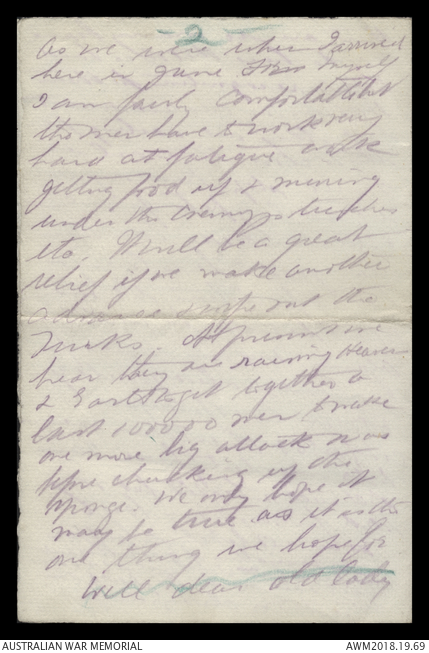 2
as we were when I arrived
here in June for myself
I am fairly comfortable but
the men have to work very
hard at fatigue work
getting food up & mining
under the enemys trenches
etc. It will be a great
relief if we make another
advance & wipe out the
Turks. At present we
hear they are raising Heaven
& Earth to get together a
last 100000 men to make
one more big attack
before chucking up the
sponge. We only hope it
may be true as it is the
one thing we hope for
Well dear old Lady
AUSTRALIAN WAR MEMORIAL
AWM2018.19.69